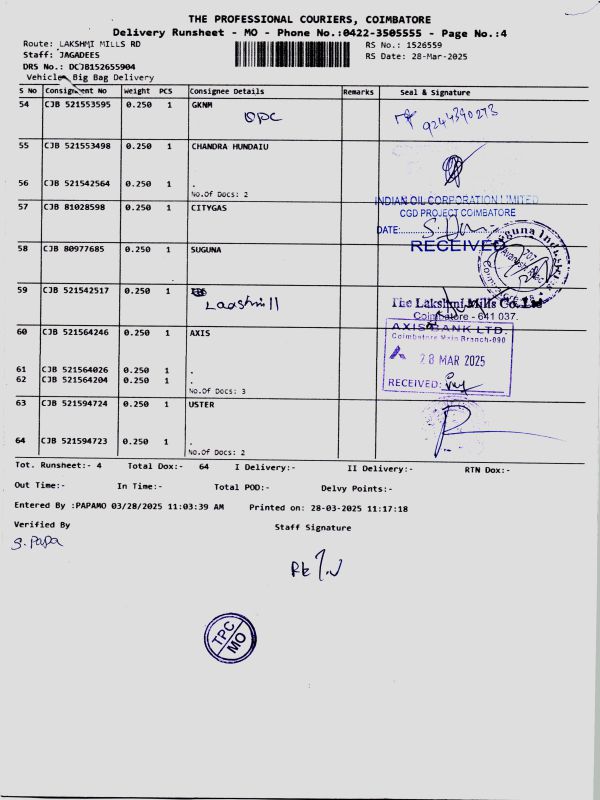 THE PROFESSIONAL COURIERS, COIMBATORE
Delivery Runsheet - MO - Phone No.:0422-3505555 - Page No.:4
Route: LAKSHMI MILLS RD
RS No.: 1526559
Staff: JAGADEES
RS Date: 28-Mar-2025
DRS No.: DCJB152655904
Vehicle: Big Bag Delivery
S No Consignment No Weight PCS Consignee Details Remarks Seal & Signature
54 CJB 521553595 0.250 1 GKNM
OPC
9244390273
55 CJB 521553498 0.250 1 CHANDRA HUNDAIU
56 CJB 521542564 0.250 1 .
No.Of Docs: 2
INDIAN OIL CORPORATION LIMITED
57 CJB 81028598 0.250 1 CITYGAS
CGD PROJECT COIMBATORE
DATE:
RECEIVED
58 CJB 80977685 0.250 1 SUGUNA
59 CJB 521542517 0.250 1
Laashmill
The Lakshmi Mills Co. Ltd
Coimbatore - 641 037.
60 CJB 521564246 0.250 1 AXIS
AXIS BANK LTD.
Coimbatore Main Branch-090
28 MAR 2025
61 CJB 521564026 0.250 1 .
62 CJB 521564204 0.250 1 .
No.Of Docs: 3
RECEIVED:
63 CJB 521594724 0.250 1 USTER
64 CJB 521594723 0.250 1 .
No.Of Docs: 2
Tot. Runsheet:- 4 Total Dox:- 64 I Delivery:- II Delivery:- RTN Dox:-
Out Time:- In Time:- Total POD:- Delvy Points:-
Entered By :PAPAMO 03/28/2025 11:03:39 AM Printed on: 28-03-2025 11:17:18
Verified By Staff Signature
S. Papa
TPC
MO